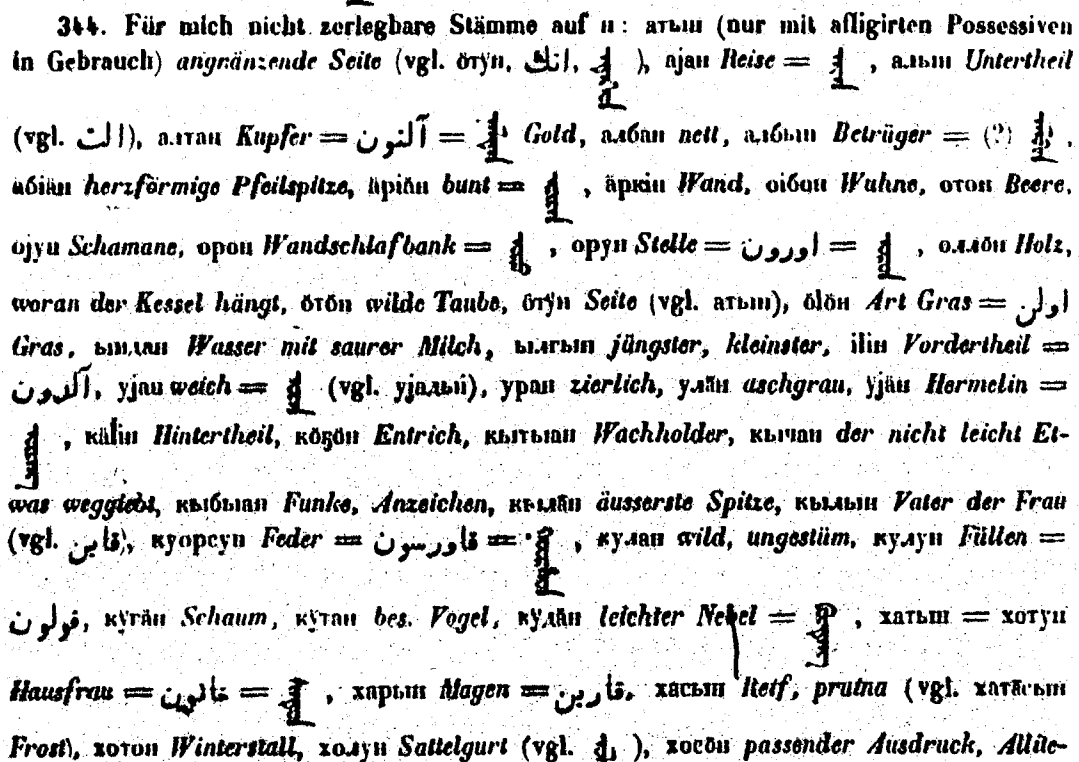 344. Für mich nicht zerlegbare Stämme auf н: атын (nur mit affigirten Possessiven
in Gebrauch) angränzende Seite (vgl. öтӱн, ), ajан Reise = , алын Untertheil
(vgl. الت), алтан Kupfer = آلتون = Gold, албан nett, албын Betrüger = (?) .
äбiäн herzförmige Pfeilspitze, äрiäн bunt = , äркiн Wand, оiбон Wuhne, отон Beere,
ojун Schamane, орон Wandschlafbank = , орун Stelle = اورون = , оллōн Holz,
woran der Kessel hängt, öтöн wilde Taube, öтӱн Seite (vgl. атын), öлöн Art Gras = اولن
Gras, ымдан Wasser mit saurer Milch, ылгын jüngster, kleinster, iliн Vordertheil =
آلدون, yjaн weich = (vgl. yjалын), уран zierlich, улāн aschgrau, ӱjäн Hermelin =
, кäliн Hintertheil, кöҕöн Entrich, кытыан Wachholder, кычан der nicht leicht Et-
was weggiebt, кыбыан Funke, Anzeichen, кылāн äusserste Spitze, кылын Vater der Frau
(vgl. قاین), куорсун Feder = قاورسون = , кулан wild, ungestüm, кулун Füllen =
قولون, Schaum, bes. Vogel, leichter Nebel = , хатын = хотун
Hausfrau = خاتون = , харын Magen = قارین, хасын Reif, pruina (vgl. хатāсын
Frost), хотон Winterstall, холун Sattelgurt (vgl. ), хосōн passender Ausdruck, Allite-